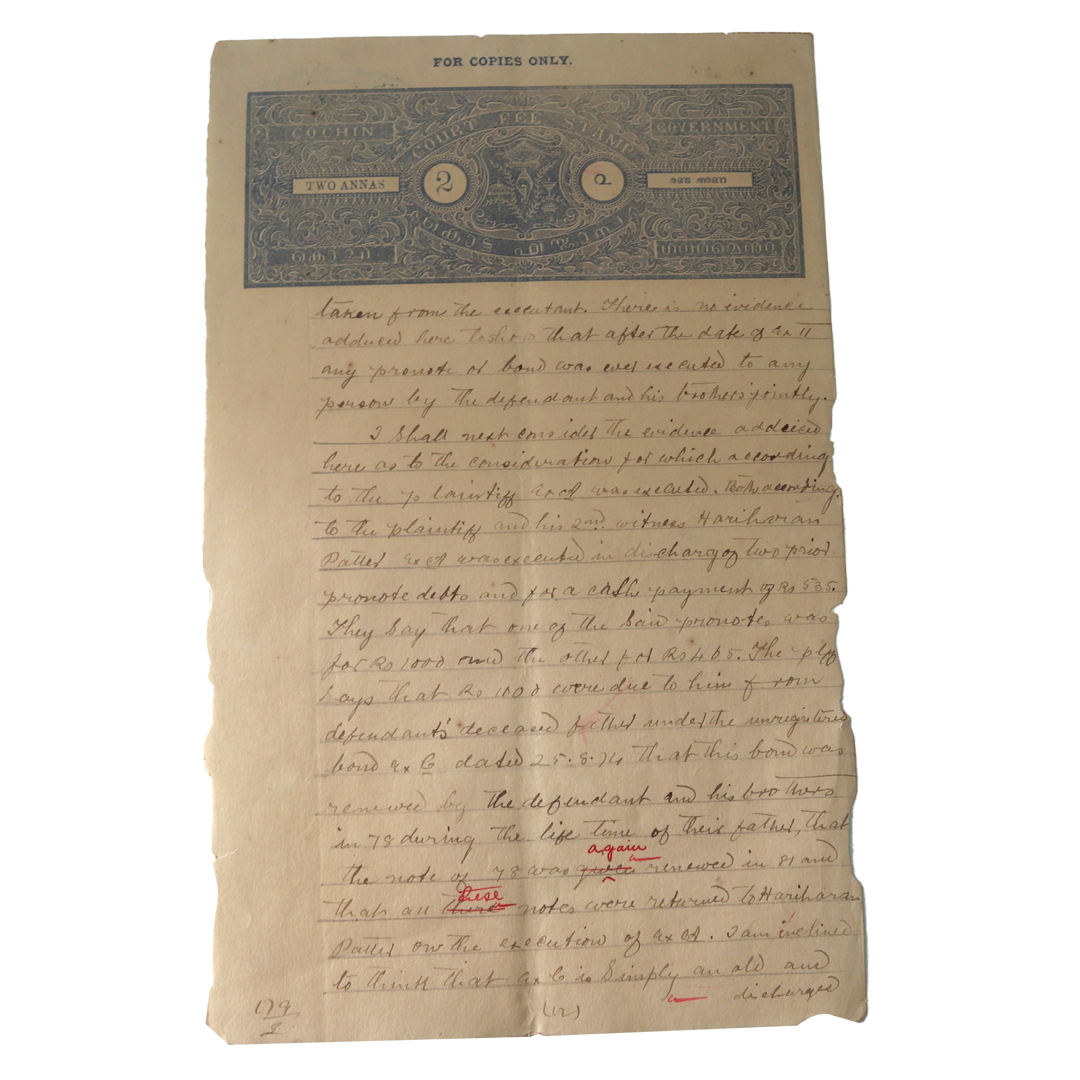 FOR COPIES ONLY.
COCHIN COURT FEE STAMP GOVERNMENT
TWO ANNAS 2 ൨ രണ്ട അണ
കൊച്ചി
taken from the executant. There is no evidence
adduced here to show that after the date of Ex II
any pronote or bond was ever executed to any
person by the defendant and his brothers jointly.
I shall next consider the evidence adduced
here as to the consideration for which according
to the plaintiff Ex A was executed. Both according
to the plaintiff and his 2nd witness Hariharan
Patter Ex A was executed in discharge of two prior
pronote debts and for a cash payment of Rs 535.
They say that one of the said pronotes was
for Rs 1000 and the other for Rs 465. The plff
says that Rs 1000 were due to him from
defendant's deceased father under the unregistered
bond Ex C dated 25.8.74 that this bond was
renewed by the defendant and his brothers
in 78 during the life time of their father, that
again
the note of 78 was given renewed in 81 and
these
that all there notes were returned to Hariharan
Patter on the execution of Ex A. I am inclined
to think that Ex C is simply an old and
discharged
179
(12)